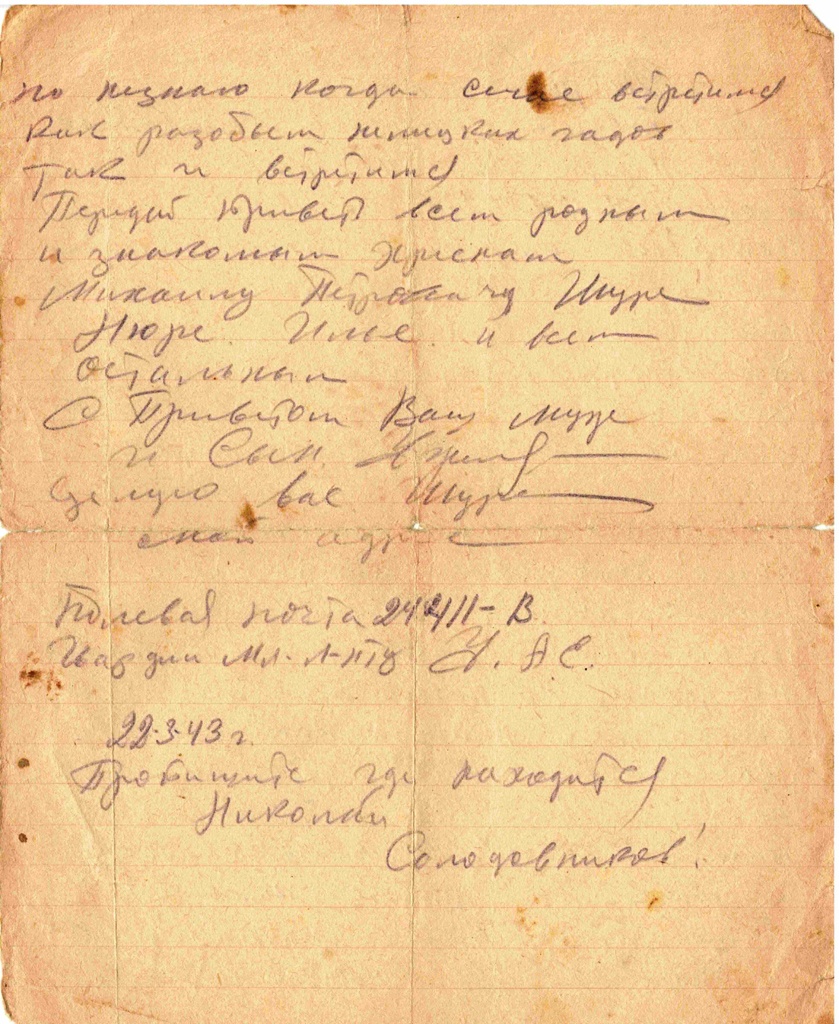 но незнаю когда сечас встретимся
как разобьем немецких гадов
так и встретимся
Передай привет всем родным
и знакомым
Михаилу Петровичу Шуре
Нюре. Илье. и всем
остальным
С Приветом Ваш муж
и Сын
целую вас Шура
мой адрес
Полевая почта 24411-В
Гвардии Мл. Л-нту У. А С.
22.3.43 г.
Пропишите где находится
Николай
Солодовников!